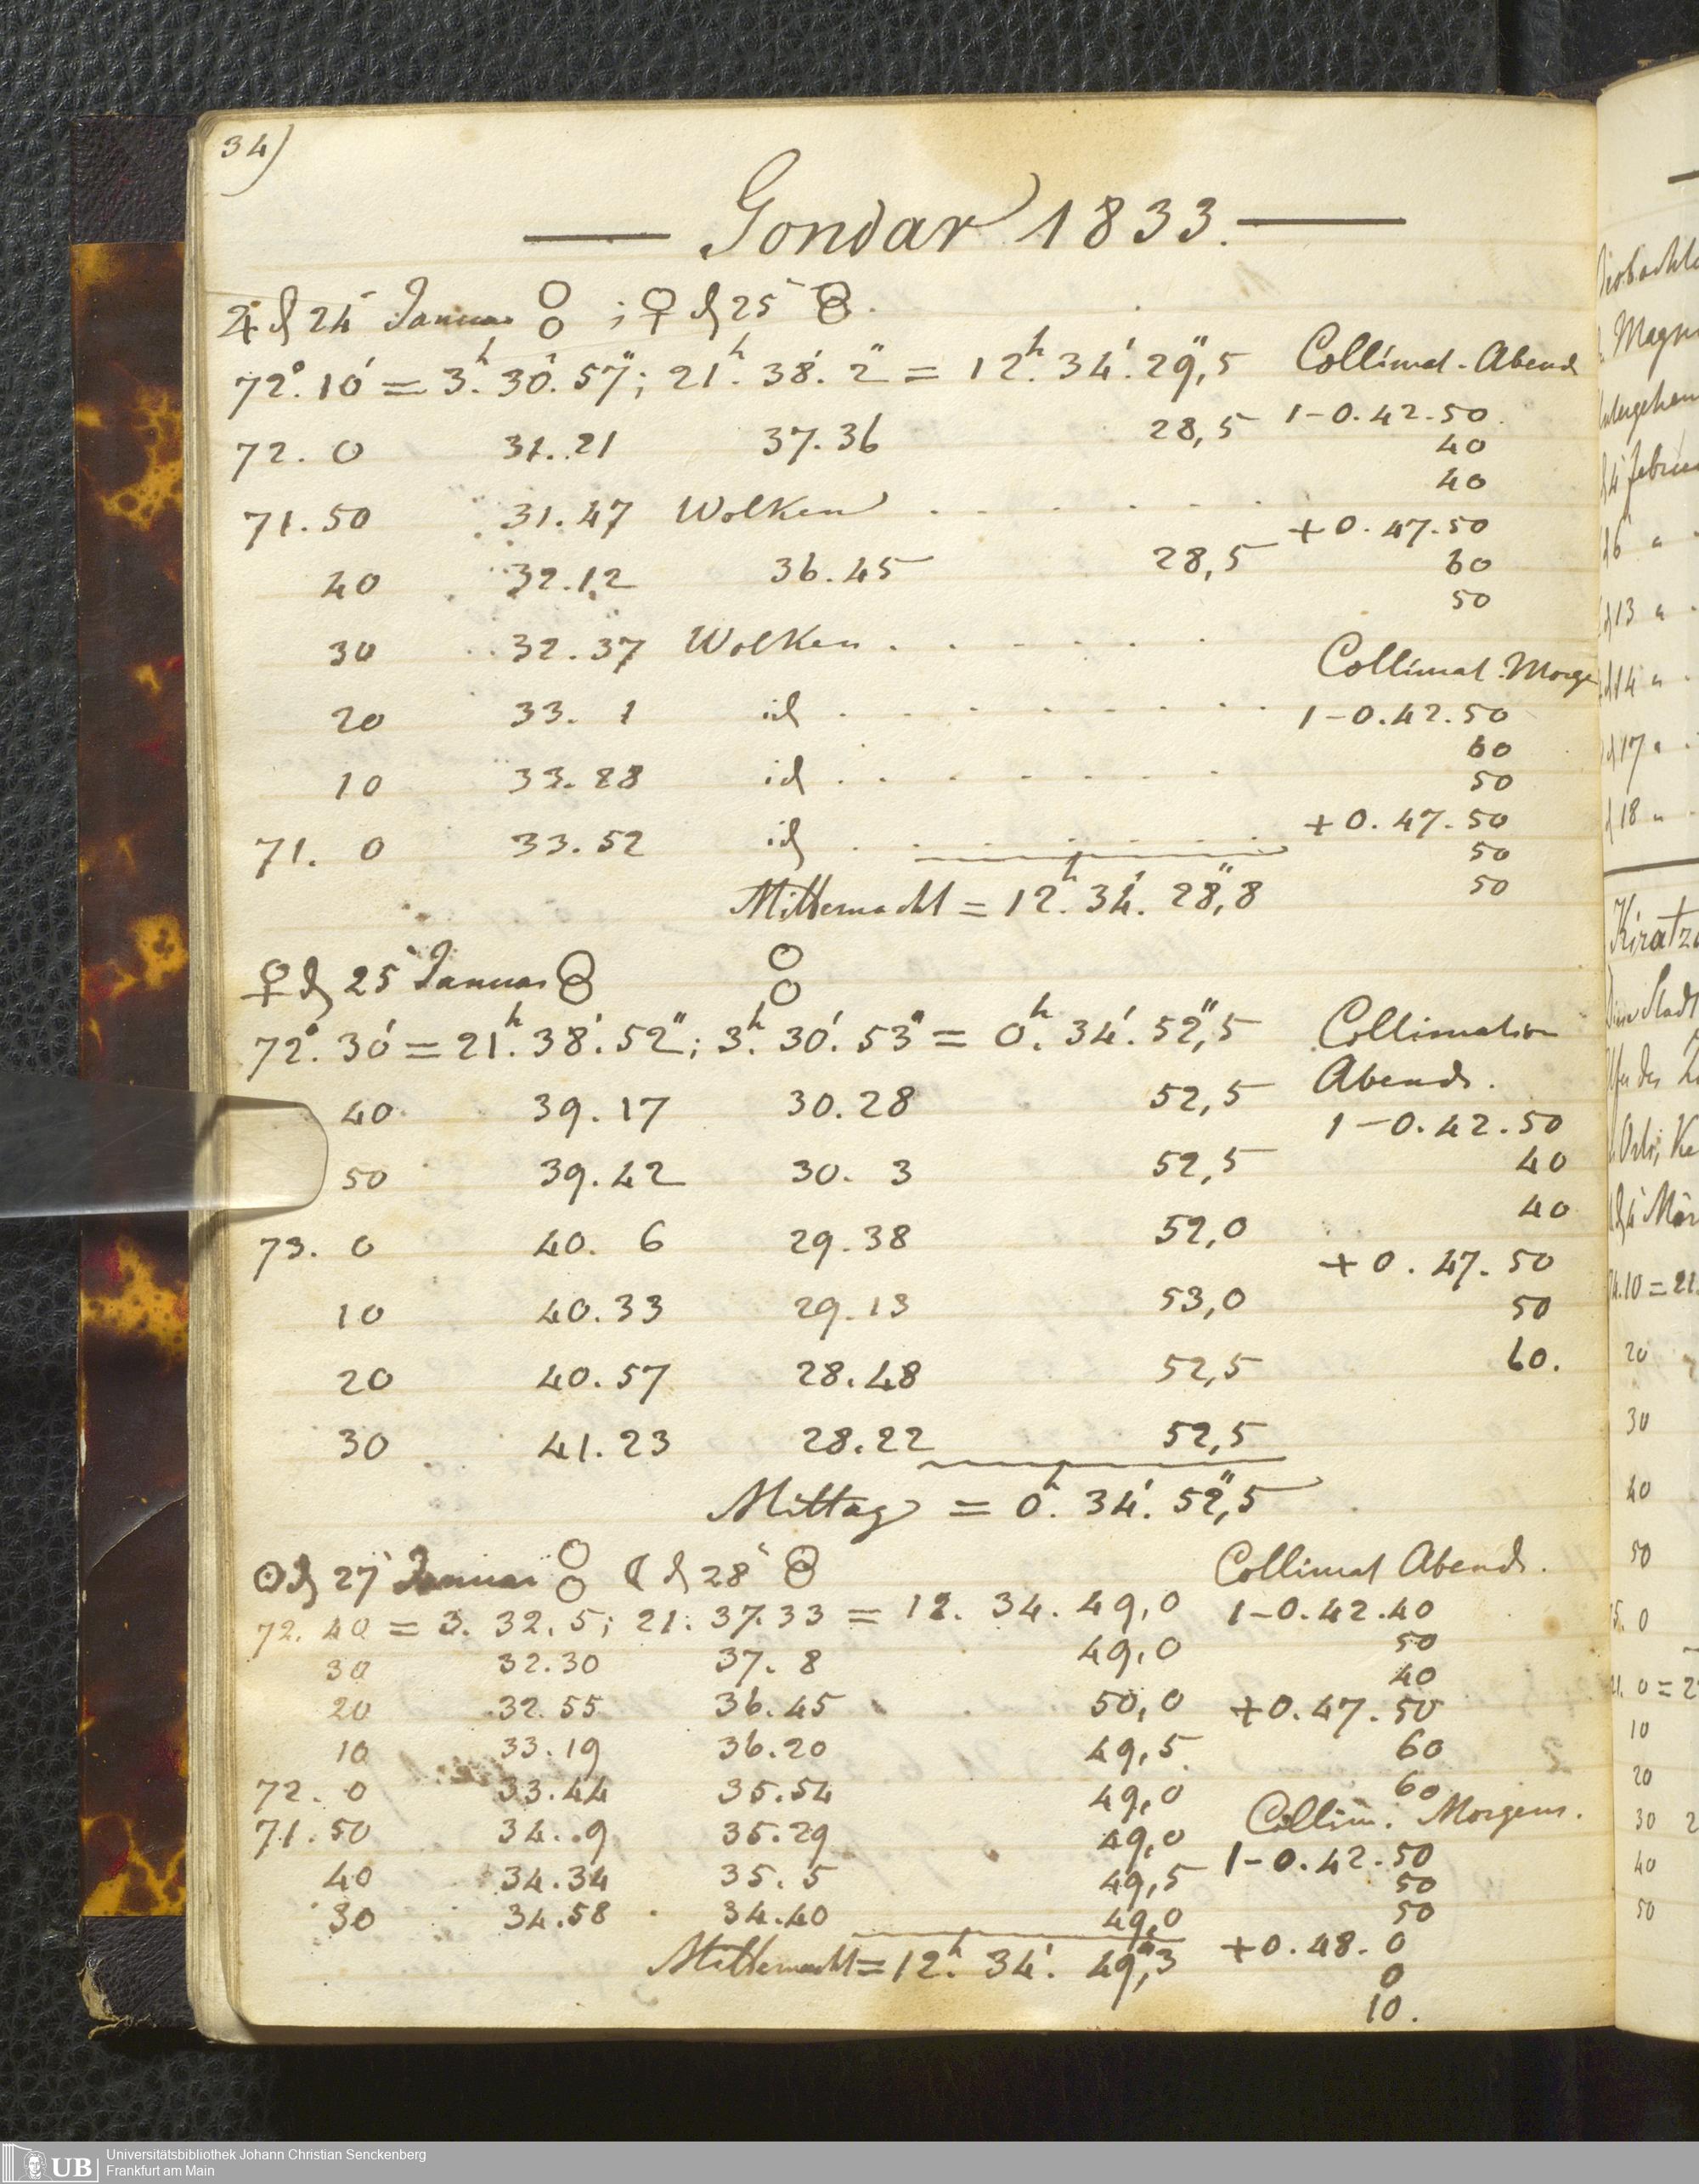 34)
— Gondar 1833. —
♃ d 24 Januar ; ♀ d 25
72°.10' = 3h.30'.57"; 21h.38'.2" = 12h.34'.29",5 Collimat. Abend
72. 0 31.21 37.36 28,5 1-0.42.50
40
71.50 31.47 Wolken . . . . . . 40
+0.47.50
40 32.12 36.45 28,5 60
50
30 32.37 Wolken . . . . . .
Collimat. Morge
20 33. 1 id . . . . . . . 1-0.42.50
60
10 33.28 id . . . . . . 50
+0.47.50
71. 0 33.52 id . . . . . . 50
Mitternacht = 12h.34'.28",8 50
♀ d 25 Januar
72°.30' = 21h.38'.52"; 3h.30'.53" = 0h.34'.52",5 Collimation
40 39.17 30.28 52,5 Abends.
1-0.42.50
50 39.42 30. 3 52,5 40
40
73. 0 40. 6 29.38 52,0
+0.47.50
10 40.33 29.13 53,0 50
20 40.57 28.48 52,5 60.
30 41.23 28.22 52,5
Mittag = 0h.34'.52",5
☉ d 27 Januar ☾ d 28 Collimat Abends.
72.40 = 3.32.5; 21.37.33 = 12.34.49,0 1-0.42.40
30 32.30 37. 8 49,0 50
40
20 32.55 36.45 50,0 +0.47.50
10 33.19 36.20 49,5 60
72. 0 33.44 35.54 49,0 60
Collim. Morgens.
71.50 34. 9 35.29 49,0
1-0.42.50
40 34.34 35. 5 49,5 50
30 34.58 34.40 49,0 50
Mitternacht = 12h.34'.49",3 +0.48. 0
0
10.
Magn
13
14
17
18
Kiratz
20
30
40
50
10
20
30 2
40
50
UB
Universitätsbibliothek Johann Christian Senckenberg
Frankfurt am Main